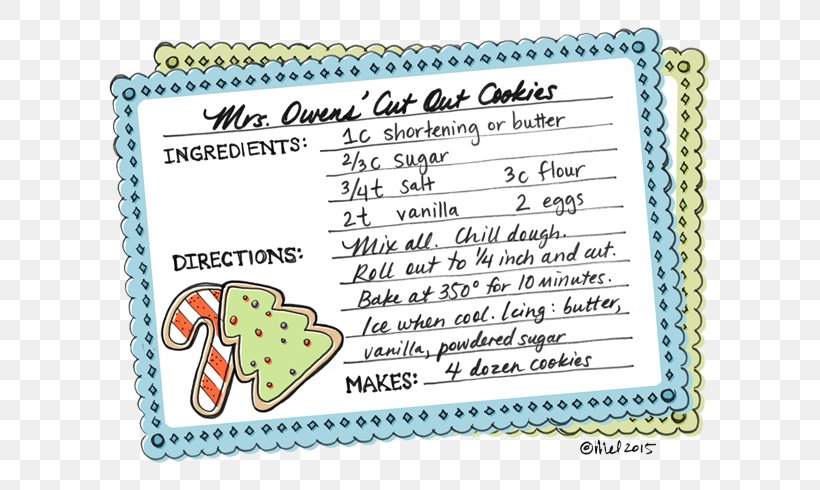 Mrs. Owens' Cut Out Cookies
INGREDIENTS: 1c shortening or butter
2/3c sugar
3/4t salt 3c flour
2t vanilla 2 eggs
DIRECTIONS: Mix all. Chill dough.
Roll out to 1/4 inch and cut.
Bake at 350° for 10 minutes.
Ice when cool. Icing: butter,
vanilla, powdered sugar
MAKES: 4 dozen cookies
2015